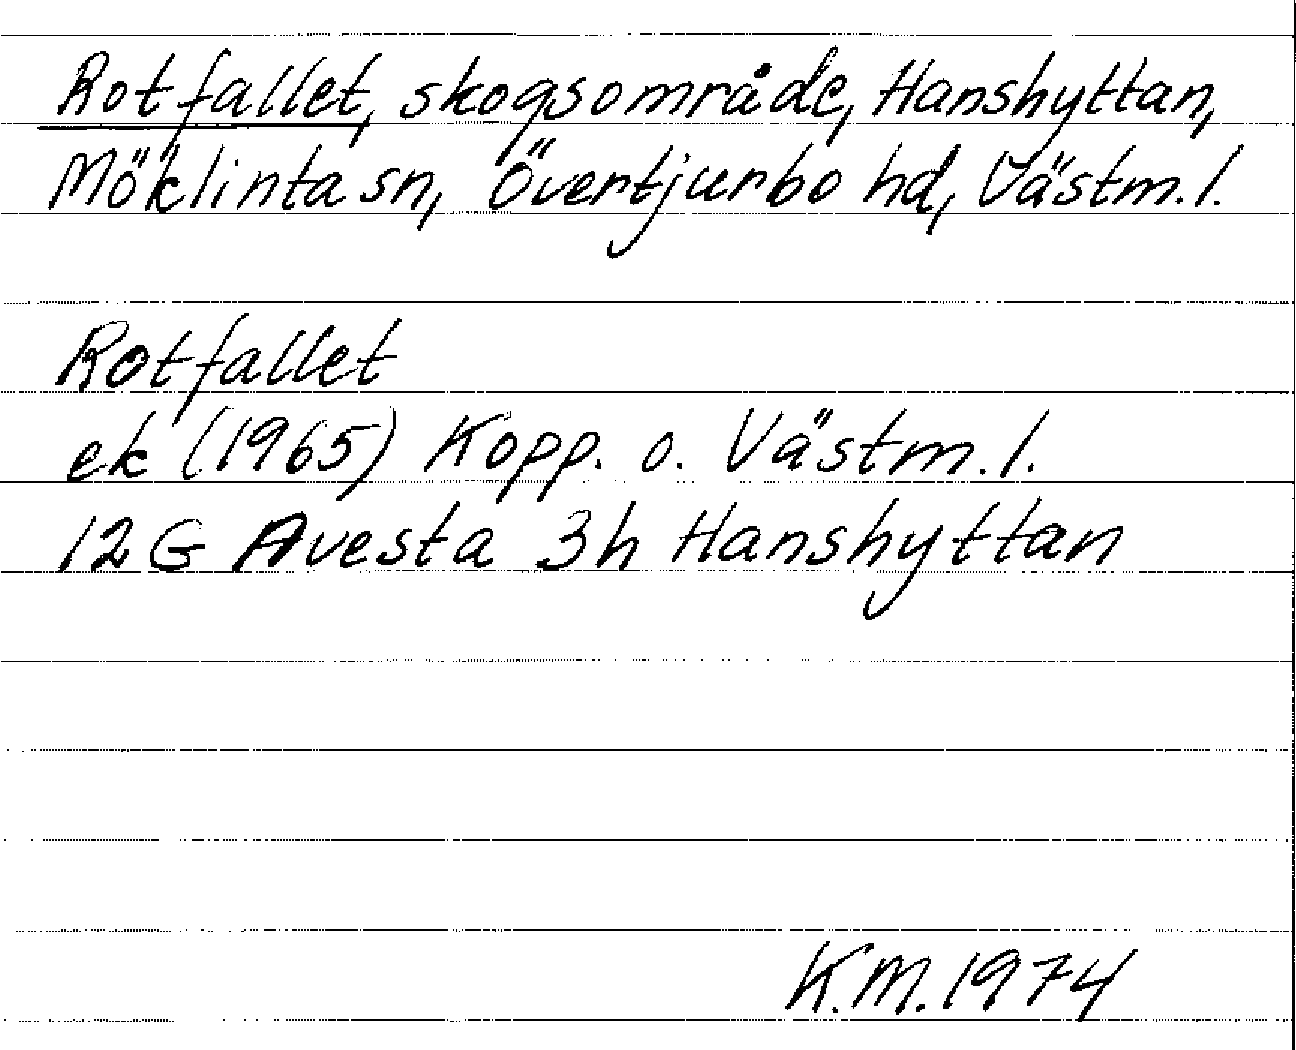 Rotfallet, skogsområde, Hanshyttan,
Möklinta sn, Övertjurbo hd, Västm. l.
Rotfallet
ek (1965) Kopp. o. Västm. l.
12G Avesta 3h Hanshyttan
K.M. 1974